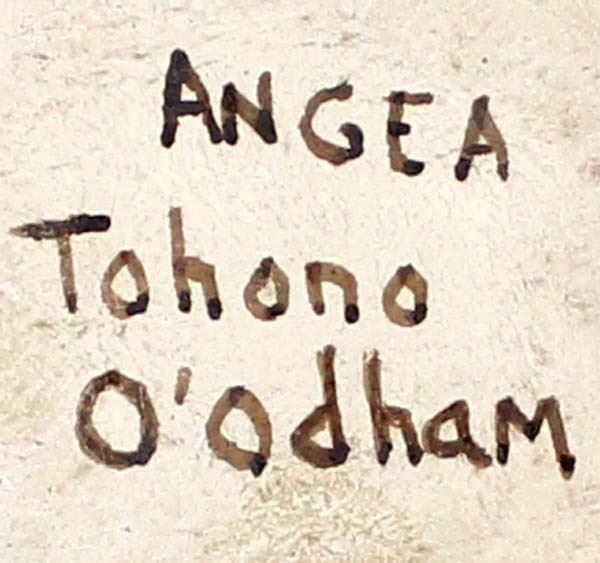 ANGEA
Tohono
O'Odham